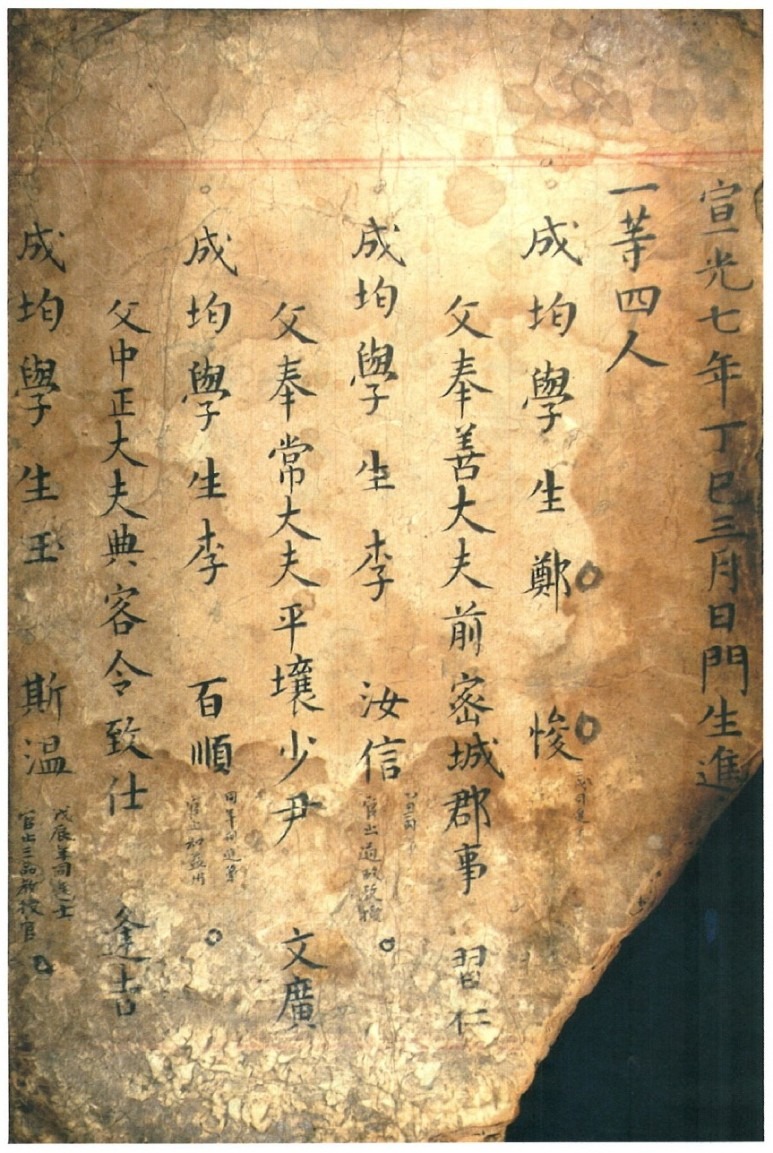 宣光七年丁巳三月日門生進
一等四人
成均學生鄭 悛
父奉善大夫前密城郡事 習仁
成均學生李 汝信
父奉常大夫平壤少尹 文廣
成均學生李 百順
父中正大夫典客令致仕 逢吉
成均學生玉 斯溫
戊辰年同進士
官出三品